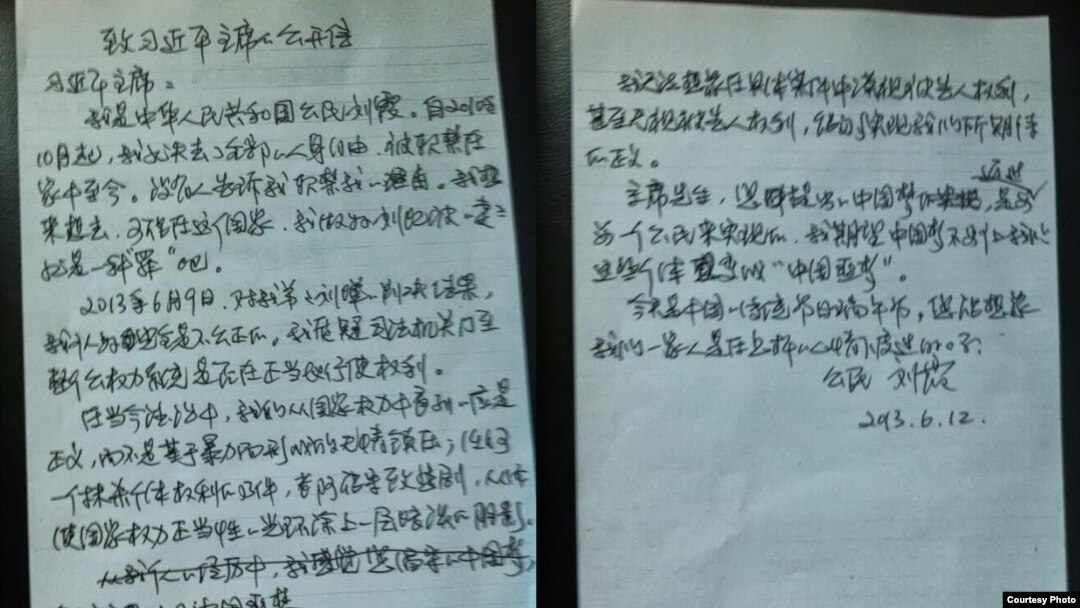 致习近平主席的公开信
习近平主席：
我是中华人民共和国公民刘霞。自2010年
10月起，我就失去了全部的人身自由，被软禁在
家中至今。没有人告诉我软禁我的理由。我想
来想去，可能在这个国家，我做为刘晓波的妻子
就是一种“罪”吧。
2013年6月9日，对我弟弟刘晖的判决结果，
我认为完全是不公正的。我质疑司法机关乃至
整个公权力系统是否在正当地行使权利。
在当今法治中，我们从国家权力中看到的应是
正义，而不是基于暴力而形成的无情镇压；任何
一个抹杀个体权利的案件，都可能导致悲剧，从而
使国家权力正当性的光环涂上一层暗淡的阴影。
从我个人的经历中，我感觉您倡导的中国梦，
我无法想象在具体案件中漠视被告人权利，
甚至无视被告人权利，能够实现我们所期待
的正义。
主席先生，您所提出的中国梦 是
每一个公民来实现的，我期望中国梦不要让我们
这些个体变成“中国噩梦”。
今天是中国的传统节日端午节，您能想象
我们一家人是在怎样的心情下度过的吗？
公民 刘霞
2013.6.12.
Courtesy Photo